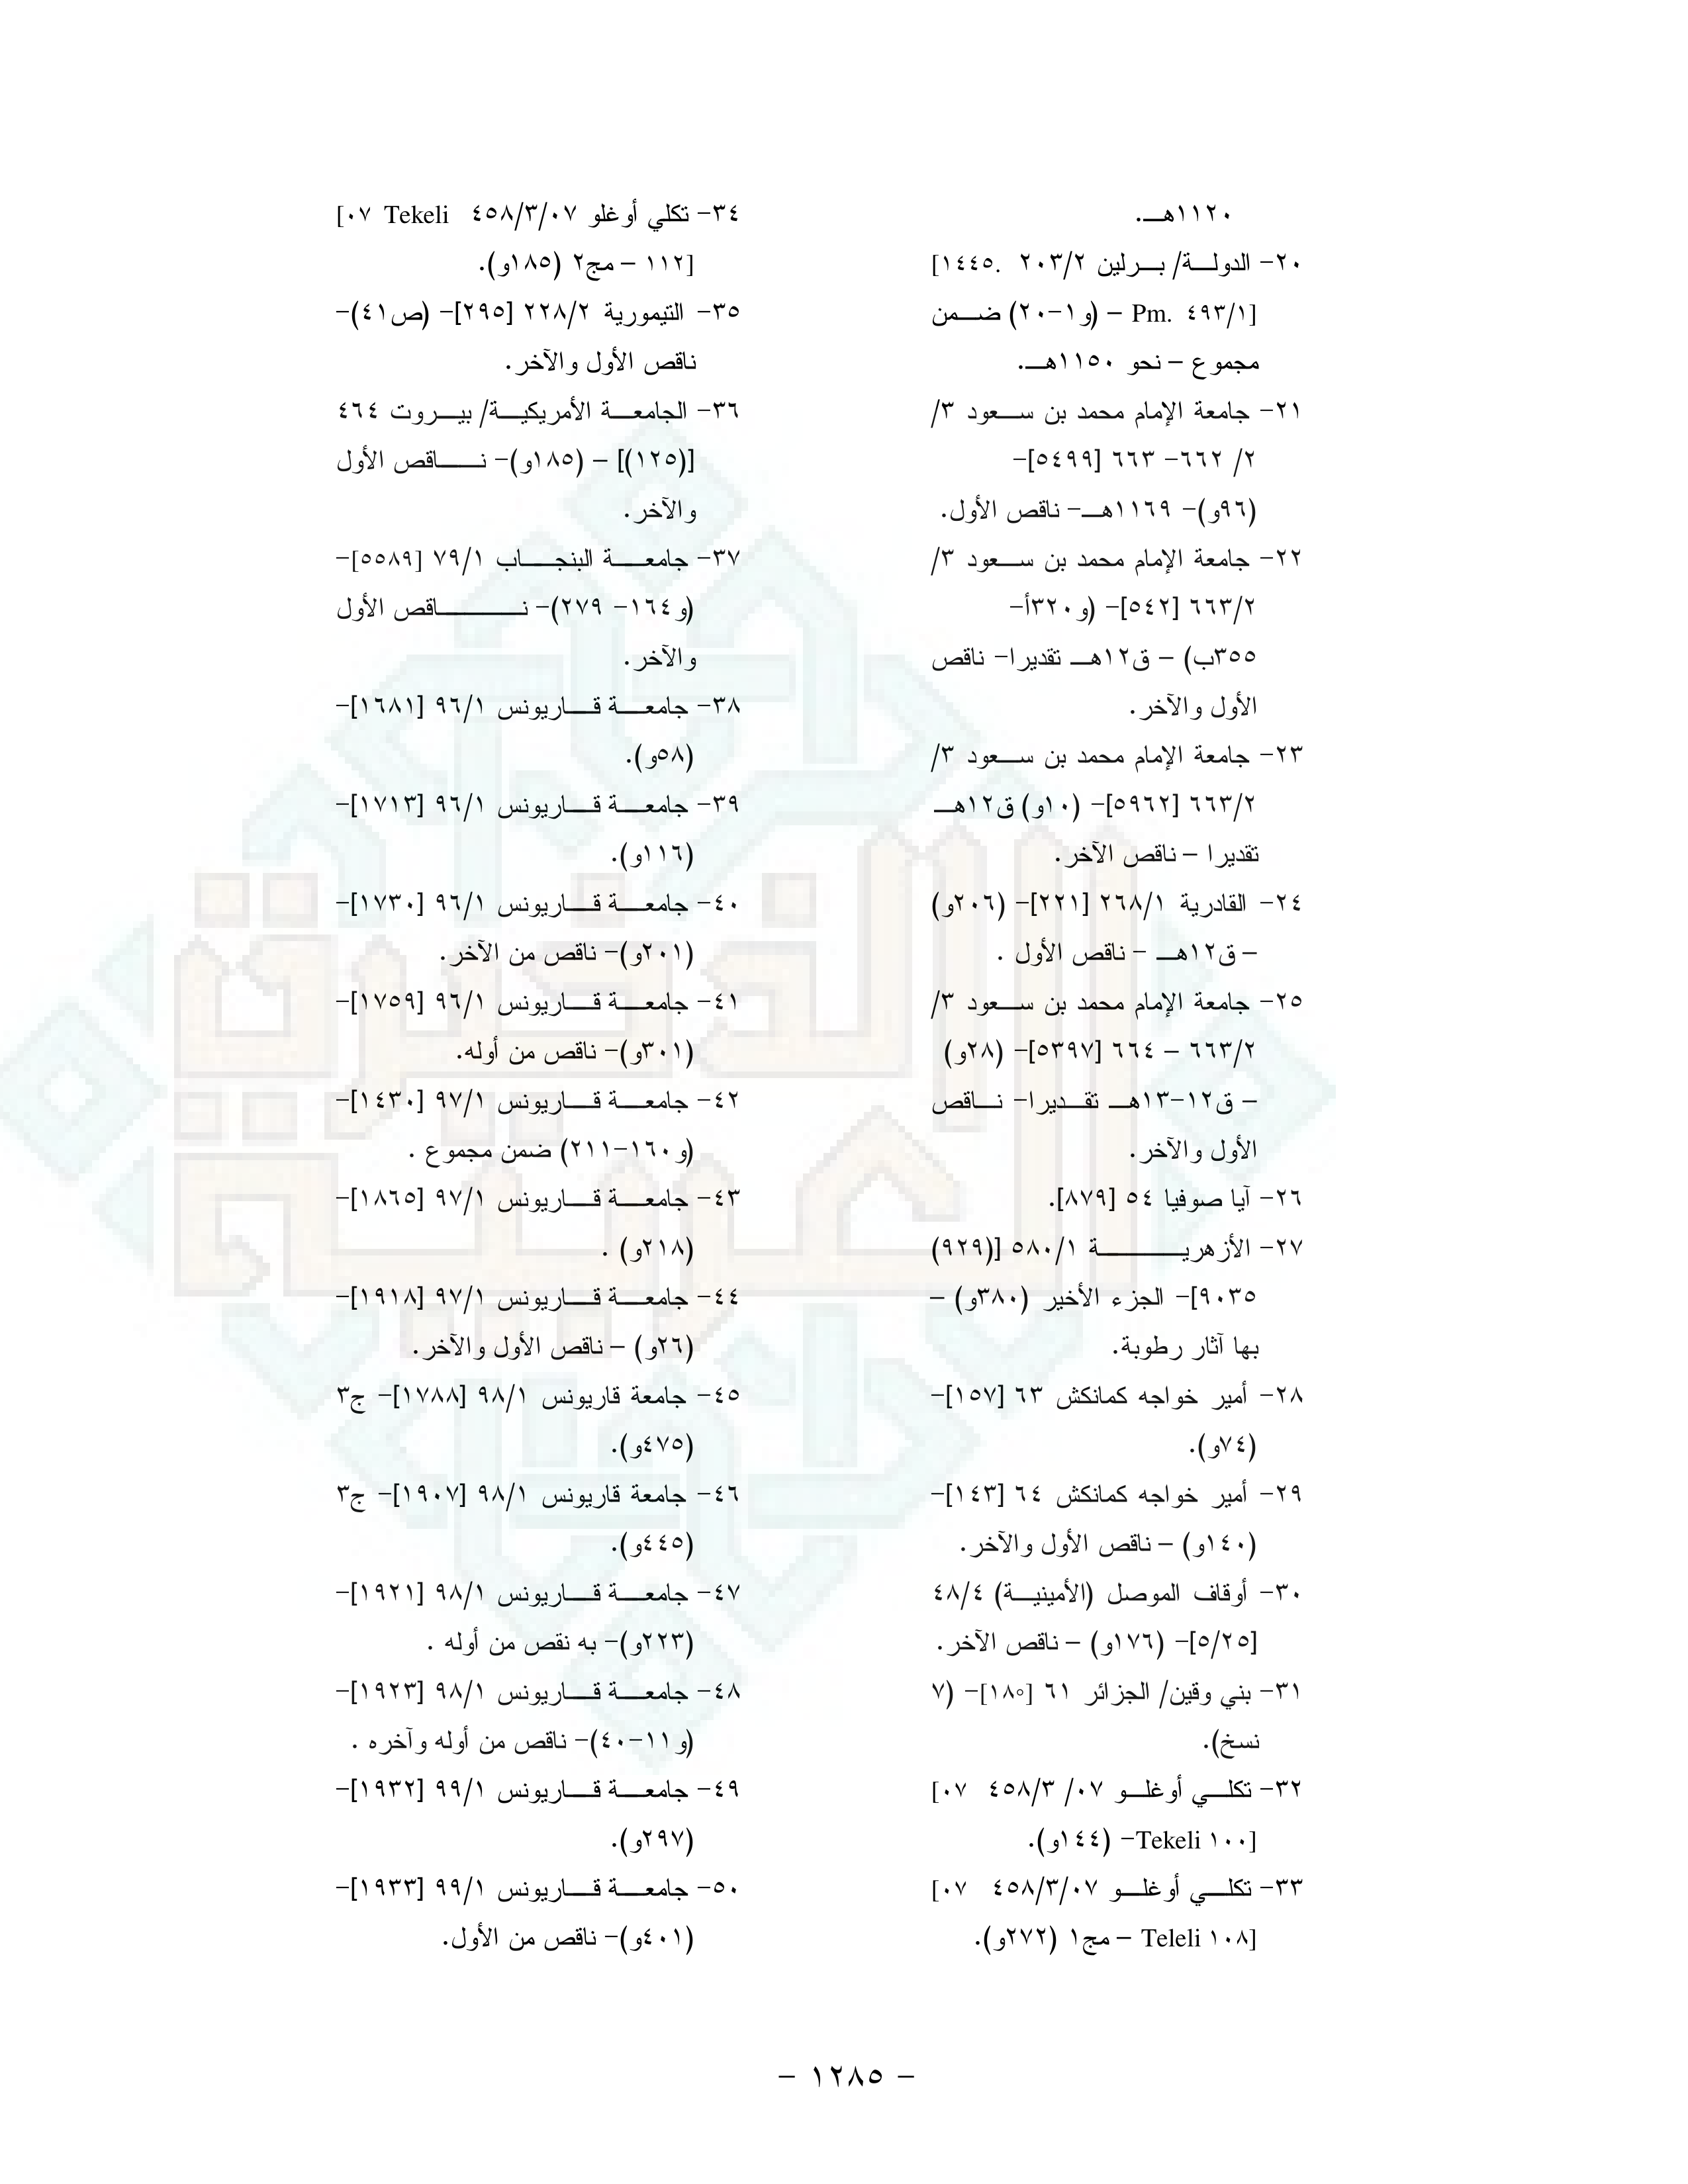 ١١٢٠هـ.
٢٠- الدولة/ برلين ٢٠٣/٢ .١٤٤٥]
[Pm. ٤٩٣/١ – (و١-٢٠) ضمن
مجموع – نحو ١١٥٠هـ.
٢١- جامعة الإمام محمد بن سعود ٣/
٢/ ٦٦٢- ٦٦٣ [٥٤٩٩]-
(٩٦و)- ١١٦٩هـ- ناقص الأول.
٢٢- جامعة الإمام محمد بن سعود ٣/
٦٦٣/٢ [٥٤٢]- (و٣٢٠أ-
٣٥٥ب) – ق١٢هـ تقديرا- ناقص
الأول والآخر.
٢٣- جامعة الإمام محمد بن سعود ٣/
٦٦٣/٢ [٥٩٦٢]- (١٠و) ق١٢هـ
تقديرا – ناقص الآخر.
٢٤- القادرية ٢٦٨/١ [٢٢١]- (٢٠٦و)
– ق١٢هـ - ناقص الأول .
٢٥- جامعة الإمام محمد بن سعود ٣/
٦٦٣/٢ – ٦٦٤ [٥٣٩٧]- (٢٨و)
– ق١٢-١٣هـ تقديرا- ناقص
الأول والآخر.
٢٦- آيا صوفيا ٥٤ [٨٧٩].
٢٧- الأزهرية ٥٨٠/١ [(٩٢٩)
٩٠٣٥]- الجزء الأخير (٣٨٠و) –
بها آثار رطوبة.
٢٨- أمير خواجه كمانكش ٦٣ [١٥٧]-
(٧٤و).
٢٩- أمير خواجه كمانكش ٦٤ [١٤٣]-
(١٤٠و) – ناقص الأول والآخر.
٣٠- أوقاف الموصل (الأمينية) ٤٨/٤
[٥/٢٥]- (١٧٦و) – ناقص الآخر.
٣١- بني وقين/ الجزائر ٦١ [١٨٠]- (٧
نسخ).
٣٢- تكلي أوغلو ٠٧/ ٤٥٨/٣ ٠٧]
[Tekeli ١٠٠- (١٤٤و).
٣٣- تكلي أوغلو ٤٥٨/٣/٠٧ ٠٧]
[Teleli ١٠٨ – مج١ (٢٧٢و).
٣٤- تكلي أوغلو ٤٥٨/٣/٠٧ ٠٧ Tekeli]
[١١٢ – مج٢ (١٨٥و).
٣٥- التيمورية ٢٢٨/٢ [٢٩٥]- (ص٤١)-
ناقص الأول والآخر.
٣٦- الجامعة الأمريكية/ بيروت ٤٦٤
[(١٢٥)] – (١٨٥و)- ناقص الأول
والآخر.
٣٧- جامعة البنجاب ٧٩/١ [٥٥٨٩]-
(و١٦٤- ٢٧٩)- ناقص الأول
والآخر.
٣٨- جامعة قاريونس ٩٦/١ [١٦٨١]-
(٥٨و).
٣٩- جامعة قاريونس ٩٦/١ [١٧١٣]-
(١١٦و).
٤٠- جامعة قاريونس ٩٦/١ [١٧٣٠]-
(٢٠١و)- ناقص من الآخر.
٤١- جامعة قاريونس ٩٦/١ [١٧٥٩]-
(٣٠١و)- ناقص من أوله.
٤٢- جامعة قاريونس ٩٧/١ [١٤٣٠]-
(و١٦٠-٢١١) ضمن مجموع .
٤٣- جامعة قاريونس ٩٧/١ [١٨٦٥]-
(٢١٨و) .
٤٤- جامعة قاريونس ٩٧/١ [١٩١٨]-
(٢٦و) – ناقص الأول والآخر.
٤٥- جامعة قاريونس ٩٨/١ [١٧٨٨]- ج٣
(٤٧٥و).
٤٦- جامعة قاريونس ٩٨/١ [١٩٠٧]- ج٣
(٤٤٥و).
٤٧- جامعة قاريونس ٩٨/١ [١٩٢١]-
(٢٢٣و)- به نقص من أوله .
٤٨- جامعة قاريونس ٩٨/١ [١٩٢٣]-
(و١١-٤٠)- ناقص من أوله وآخره .
٤٩- جامعة قاريونس ٩٩/١ [١٩٣٢]-
(٢٩٧و).
٥٠- جامعة قاريونس ٩٩/١ [١٩٣٣]-
(٤٠١و)- ناقص من الأول.
- ١٢٨٥ -